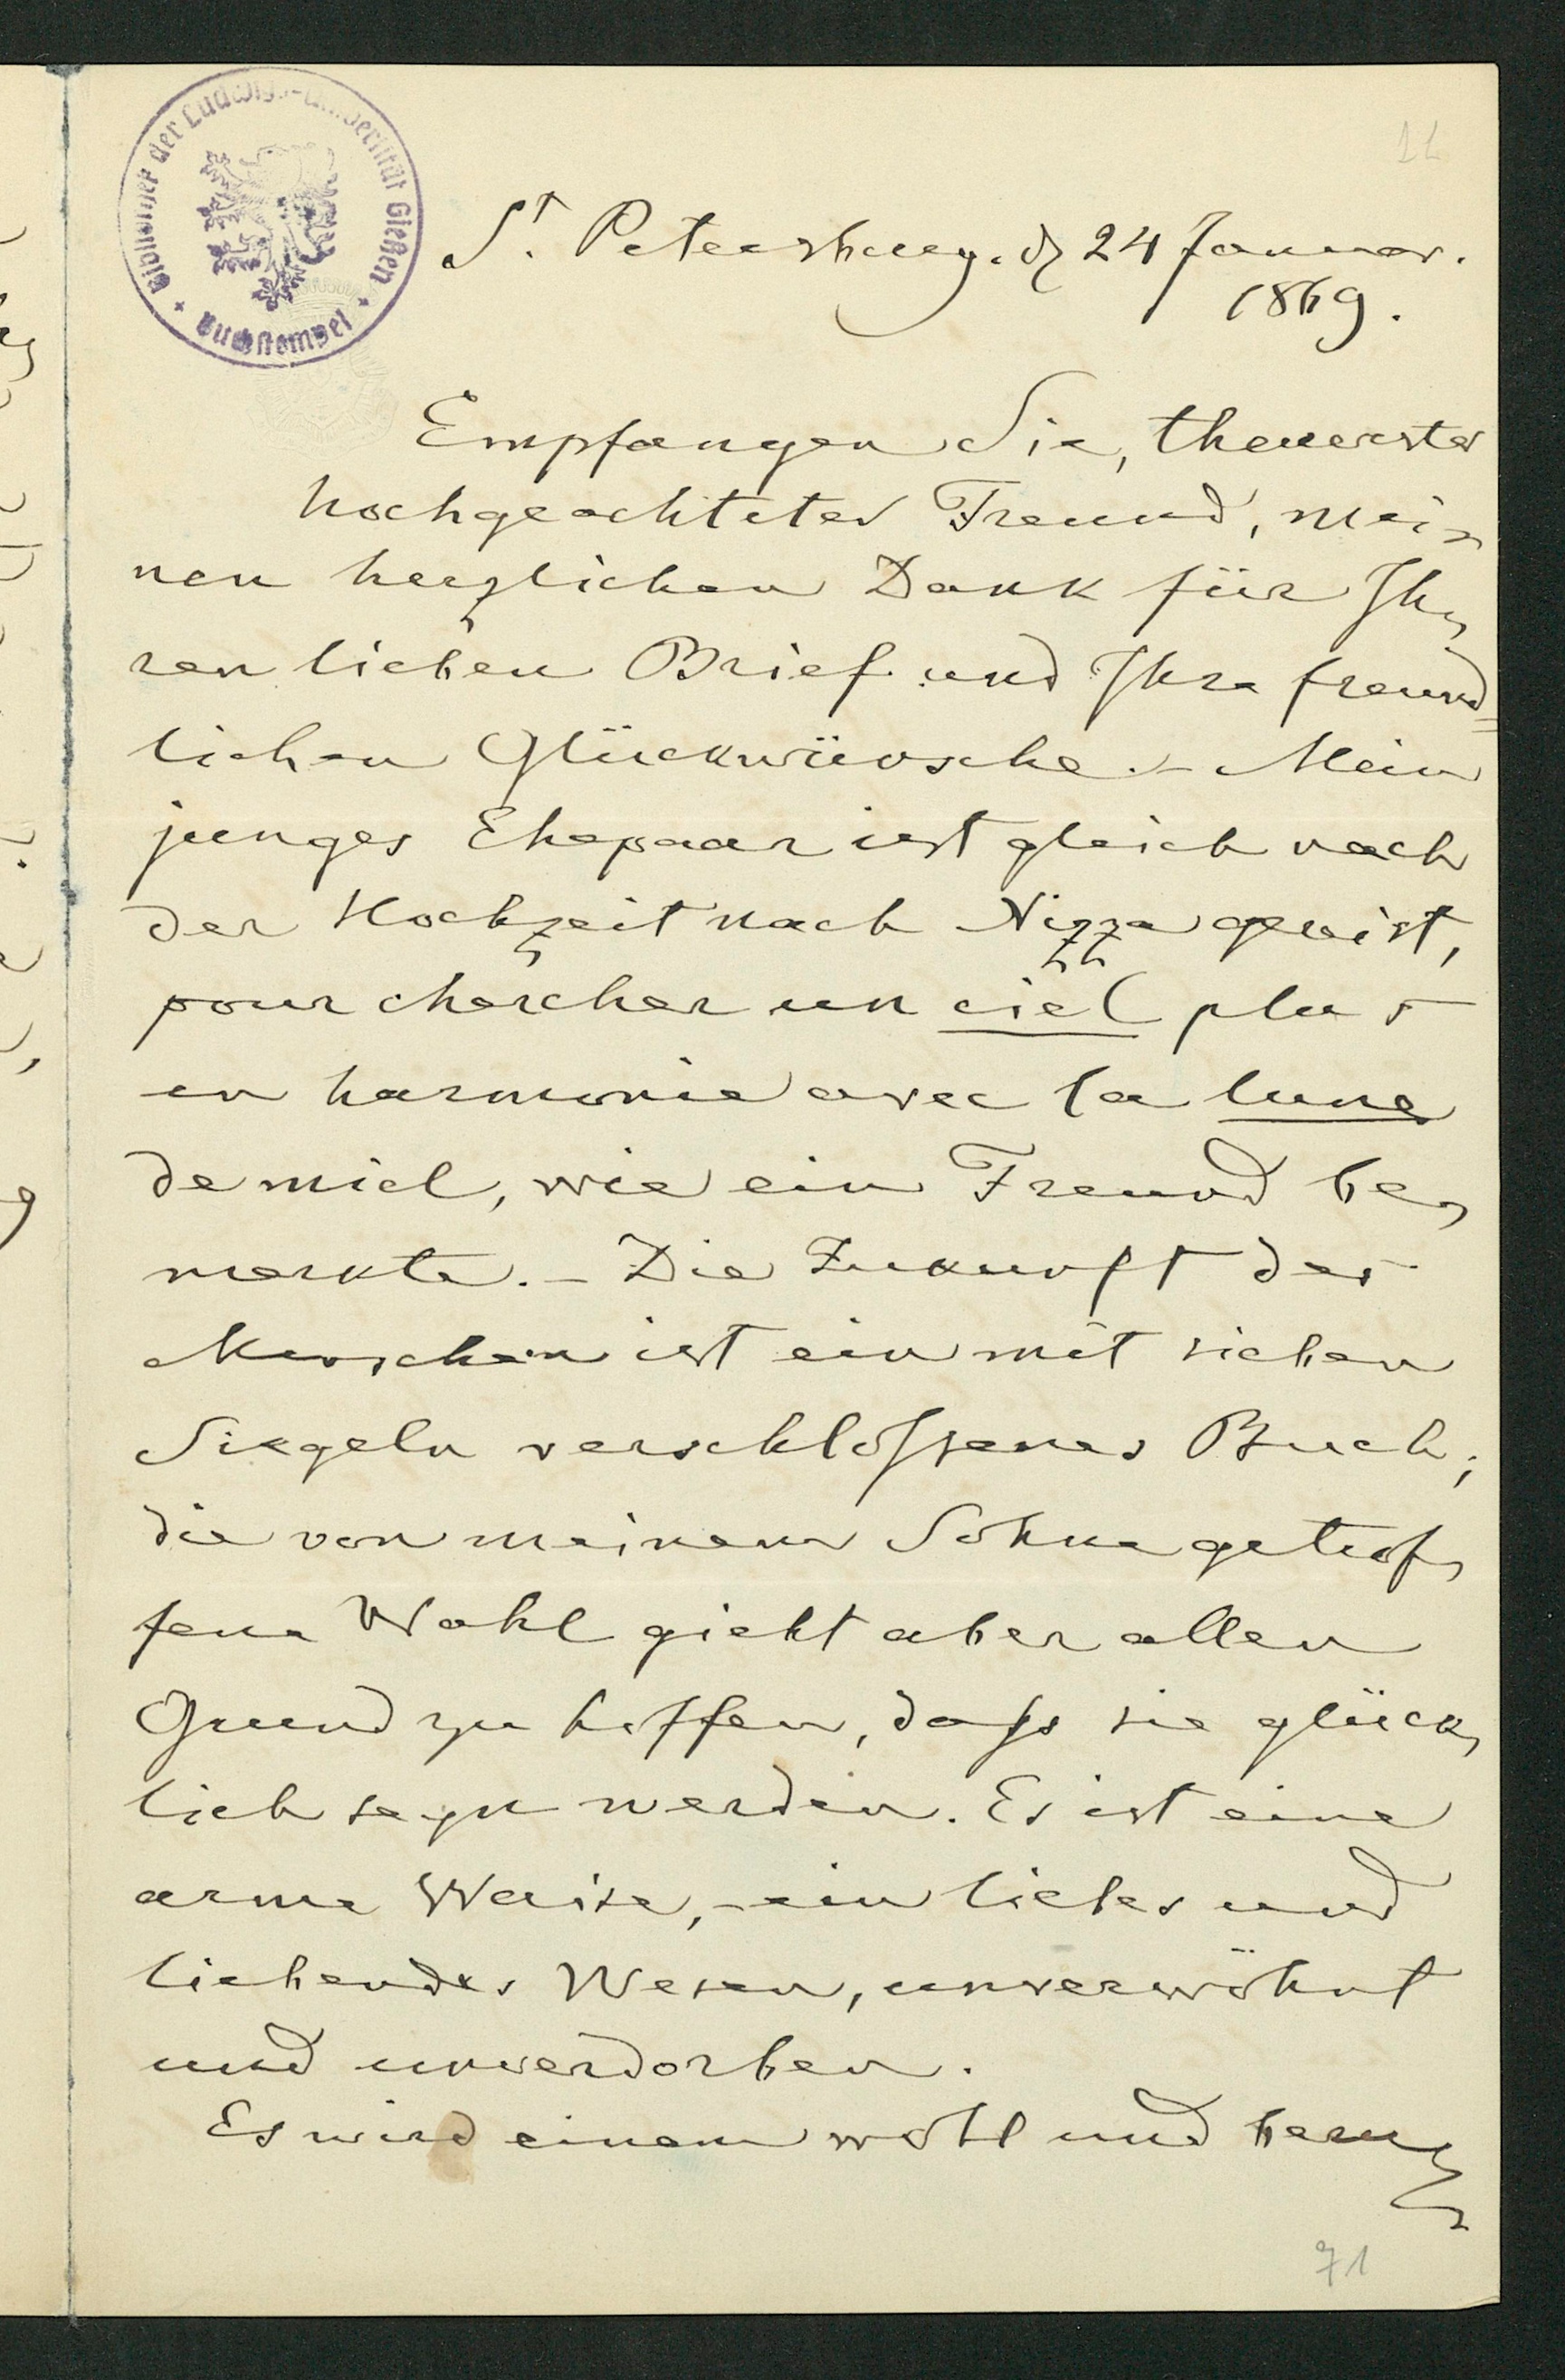 Bibliothek der Ludwigs-Universität Gießen
Buchstempel
St. Petersburg. d 24 Januar.
1869.
Empfangen Sie, theuerster
hochgeachteter Freund, mei-
nen herzlichen Dank für Ih-
ren lieben Brief und Ihre freund=
lichen Glückwünsche. - Mein
junges Ehepaar ist gleich nach
der Hochzeit nach Nizza gereist,
pour chercher un ciel plus
en harmonie avec la lune
de miel, wie ein Freund be-
merkte. - Die Zukunft des
Menschen ist ein mit sieben
Siegeln verschlossenes Buch;
die von meinem Sohne getrof-
fene Wahl giebt aber allen
Grund zu hoffen, dass sie glück-
lich seyn werden. Es ist eine
arme Waise, - ein liebes und
liebendes Wesen, unverwöhnt
und unverdorben.
Es wird einem wohl und
71